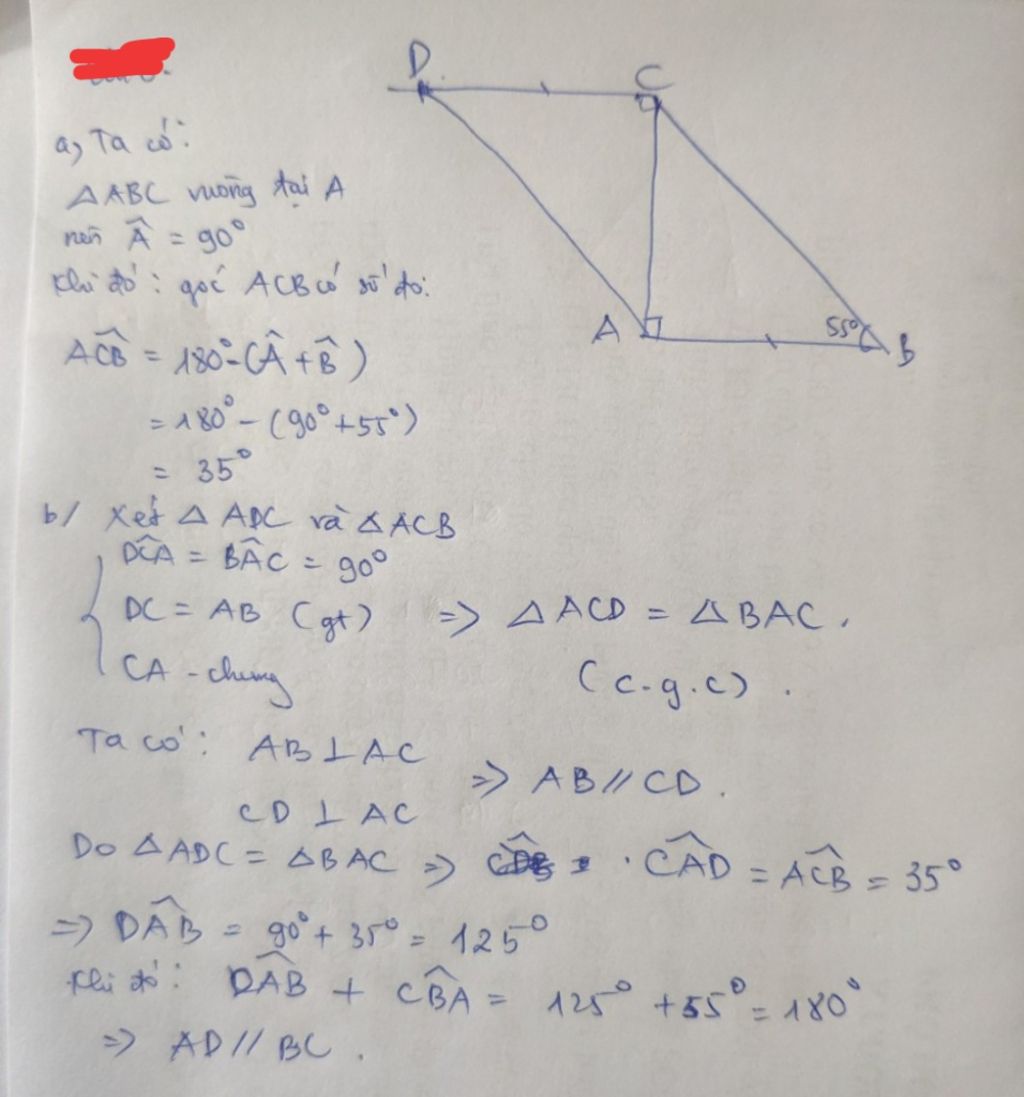 D
C
a, Ta có:
△ABC vuông tại A
nên Â = 90°
Khi đó: góc ACB có số đo:
A
55°
B
ACB̂ = 180° - (Â + B̂)
= 180° - (90° + 55°)
= 35°
b/ Xét △ ADC và △ ACB
DĈA = BÂC = 90°
DC = AB (gt) => △ ACD = △ BAC.
CA - chung (c.g.c).
Ta có: AB ⊥ AC
=> AB // CD.
CD ⊥ AC
Do △ADC = △BAC => CÂD = AĈB = 35°
=> DÂB = 90° + 35° = 125°
Khi đó: DÂB + CB̂A = 125° + 55° = 180°
=> AD // BC.